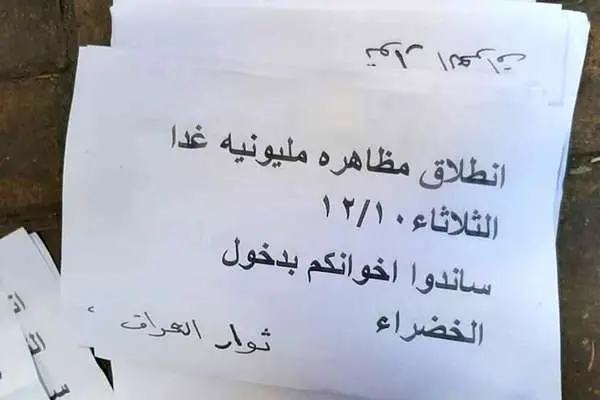 ثوار العراق
انطلاق مظاهره مليونيه غدا
الثلاثاء ١٢/١٠
ساندوا اخوانكم بدخول
الخضراء
ثوار العراق